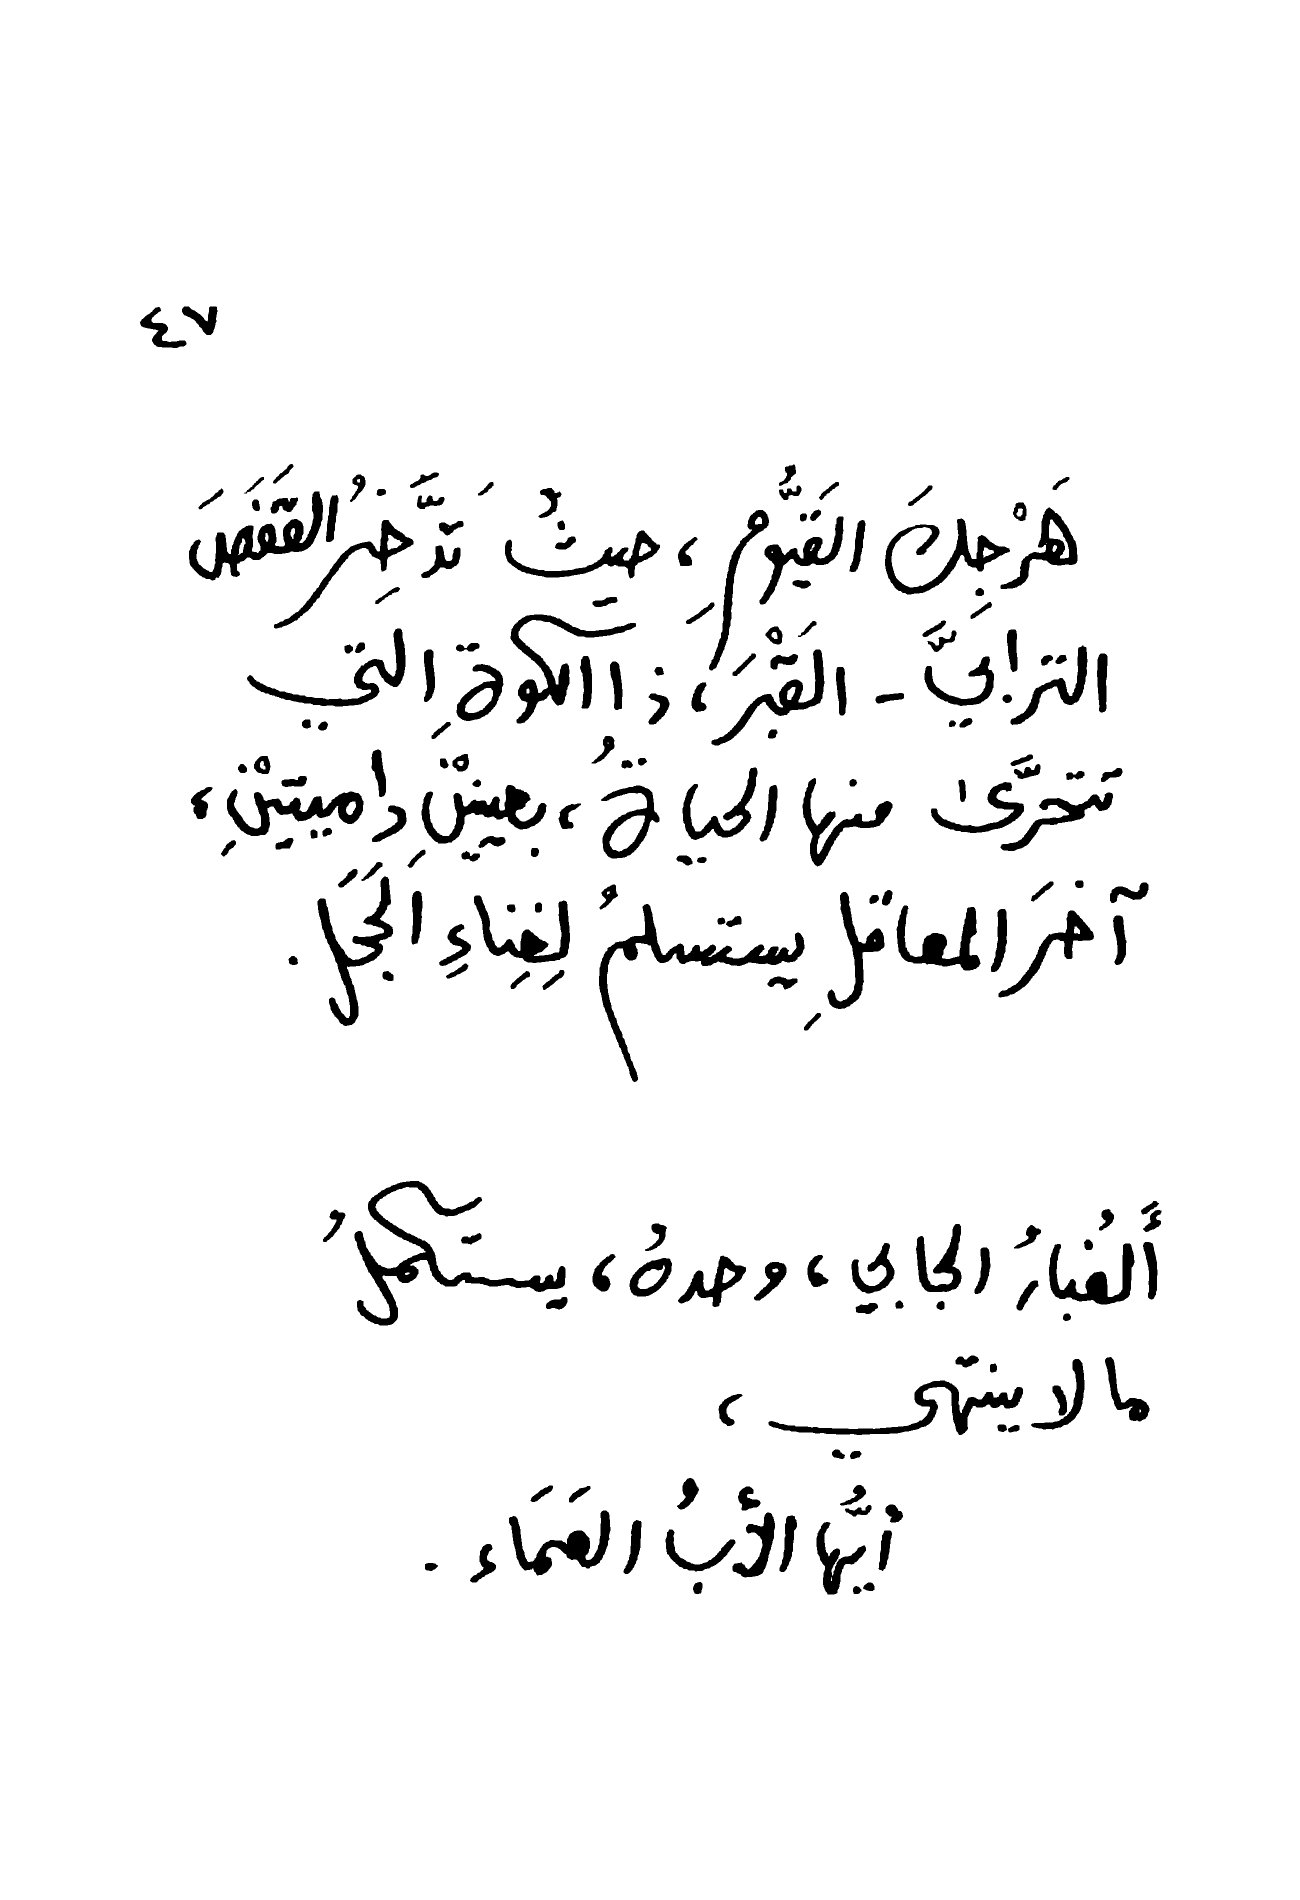 ٤٧
هَرْجِكَ القَيُّومِ، حيثُ تَدَّخِرُ القَفَصَ
الترابيَّ - القَبْرَ، ذا الكوةِ التي
تتحرَّى منها الحياةُ، بعينَيْنِ داميتيْنِ،
آخرَ المعاقلِ يستسلمُ لِغِناءِ الحَجَلِ.
أَلغُبارُ الجابي، وحدهُ، يستكملُ
ما لا ينتهي،
أيُّها الأبُ العَمَاء.